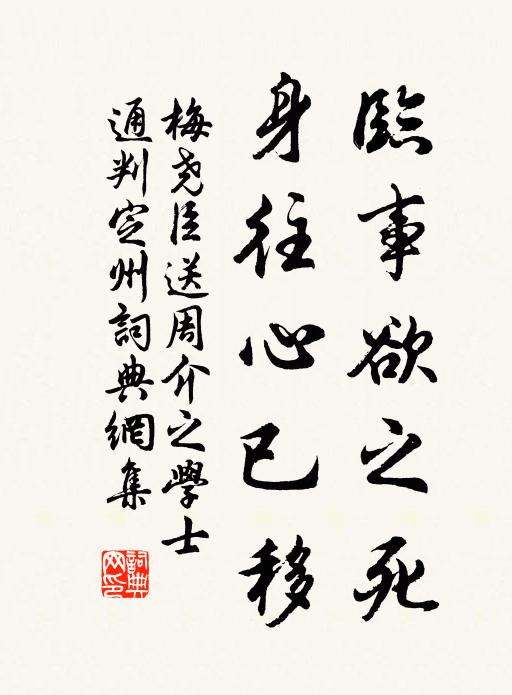 臨事欲之死
身往心已移
梅堯臣送周介之學士
通判定州詞典網集
詞典網印